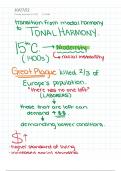 transition from modal harmony
to TONAL HARMONY
15°C → Modernity
(1400s) ↳ radical instability
Great Plague killed 2/3 of
Europe's population.
"there was no one left"
(LABORERS)
↓
those that are left can
demand $$
↓
demanding better conditions.
- higher standard of living